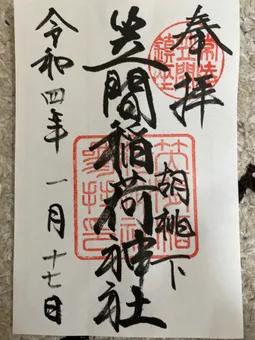 奉拝
胡桃下
笠間稲荷神社
令和四年一月十七日